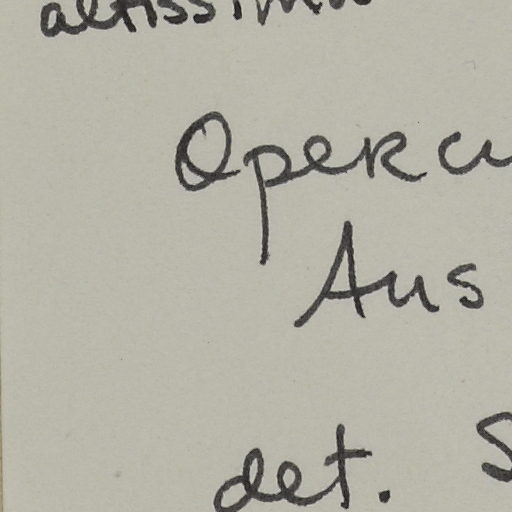 altissima
Opercu
Aus
det. S